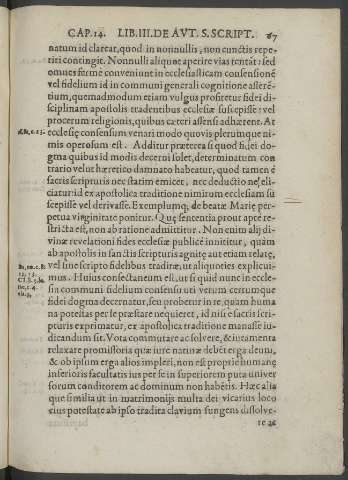 CAP. 14. LIB. III. DE AVT. S. SCRIPT. 67
natum id claret, quod in nonnullis, non cunctis repe
riri contingit. Nonnulli aliqune aperire vias tentāt: sed
omnes fermè conveniunt in ecclesiasticam consensionē
vel fidelium id in communi generali cognitione asserē-
tium, quemadmodum etiam vulgus profitetur fidei di-
sciplinam apostolis tradentibus ecclesiæ suscepisse: vel
procerum religionis, quibus cæteri assensi adhærent. At
ecclesię consensum venari modo quovis plerumque ni-
mis operosum est. Additur præterea si quod fidei do-
gma quibus id modis decerni solet, determinatum con
trario velut hæretico damnato habeatur, quod tamen è
sacris scripturis nec statim emicet, nec deductione eli-
ciatur: id ex apostolica traditione nimirum ecclesiam su
scepisse vel derivasse. Exemplumq; de beatæ Mariæ per-
petua virginitate ponitur. Quę sententia prout aptè re-
stricta est, non ab ratione admittitur. Non enim alij di-
vinæ revelationi fides ecclesiæ publicè innititur, quàm
ab apostolis in sanctis scripturis agnitę aut etiam relatę,
vel sine scripto fidelibus traditæ, ut aliquoties explicui-
mus. Huius consectaneum est, ut si quid nunc in eccle-
sia communi fidelium consensu uti verum certumque
fidei dogma decernatur, seu probetur in re, quam huma
na potestas per se præstare nequieret, id nisi è sacris scri-
pturis exprimatur, ex apostolica traditione manasse iu-
dicandum sit. Vota commutare ac solvere, & iuramenta
relaxare promissoria quæ iure naturæ debēt erga deum,
& ob ipsum erga alios impleri, non est propriè humanę
inferioris facultatis ius per se in superiorem puta univer
sorum conditorem ac dominum non habētis. Hæc alia
que similia ut in matrimonijs multa dei vicarius loco
eius potestate ab ipso tradita clavium fungens dissolve-
re ac